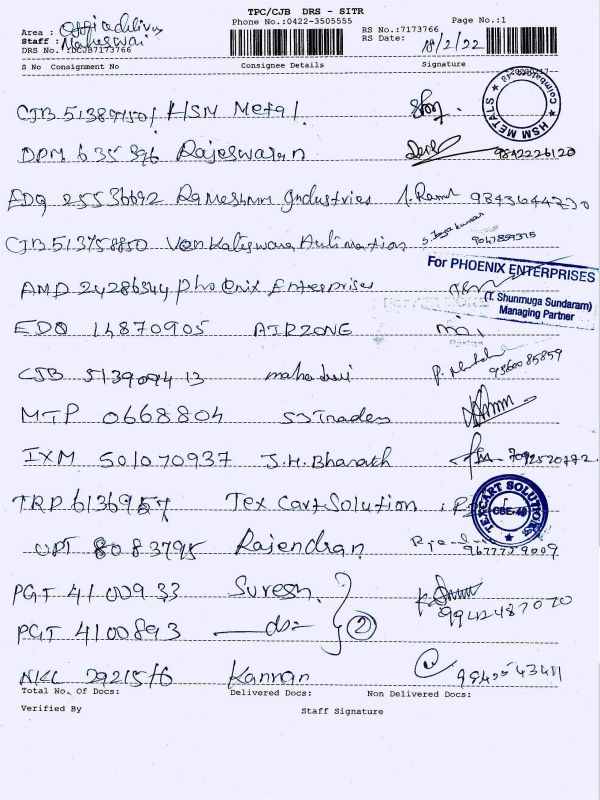 TPC/CJB DRS - SITR
Phone No.:0422-3505555 Page No.:1
Area : Office delivery RS No.:7173766
Staff : Maheswai RS Date: 18/2/22
DRS No.:DCJB7173766
S No Consignment No Consignee Details Signature
HSN Metal HSM METALS Coimbatore
DPM 635 896 Rajeswaran 9842226120
EDQ 25536692 Rameshwar Industries 9843644230
CJB 513758850 Venkateswara Automation 9047859375
AMD 24286344 Phoenix Enterprises For PHOENIX ENTERPRISES
(T. Shunmuga Sundaram)
Managing Partner
EDQ 14870905 AIRZONE
CJB 513909413 mahadevi 9360085859
MTP 0668804 SS Traders
IXM 501070937 J.H. Bharath
TRP 6136957 Tex Cart Solution TEXCART SOLUTIONS
CBE-40
UPT 8083795 Rajendran 9677759009
PGT 4100933 Suresh 9942487020
PGT 4100893 —do— 2
NKL Kannan
Total No. Of Docs: Delivered Docs: Non Delivered Docs:
Verified By Staff Signature